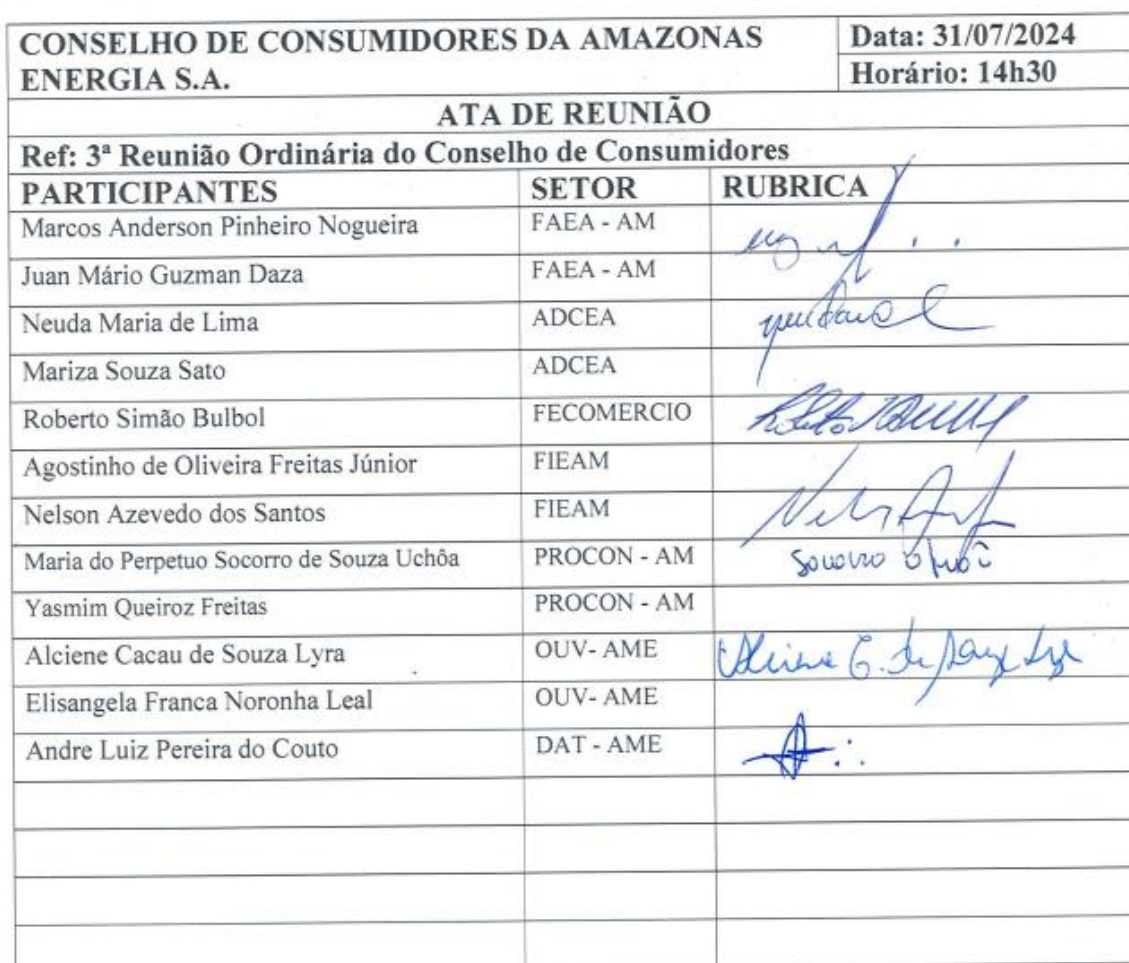 CONSELHO DE CONSUMIDORES DA AMAZONAS ENERGIA S.A.
Data: 31/07/2024
Horário: 14h30
ATA DE REUNIÃO
Ref: 3ª Reunião Ordinária do Conselho de Consumidores
PARTICIPANTES SETOR RUBRICA
Marcos Anderson Pinheiro Nogueira FAEA - AM
Juan Mário Guzman Daza FAEA - AM
Neuda Maria de Lima ADCEA
Mariza Souza Sato ADCEA
Roberto Simão Bulbol FECOMERCIO
Agostinho de Oliveira Freitas Júnior FIEAM
Nelson Azevedo dos Santos FIEAM
Maria do Perpetuo Socorro de Souza Uchôa PROCON - AM
Yasmim Queiroz Freitas PROCON - AM
Alciene Cacau de Souza Lyra OUV- AME
Elisangela Franca Noronha Leal OUV- AME
Andre Luiz Pereira do Couto DAT - AME